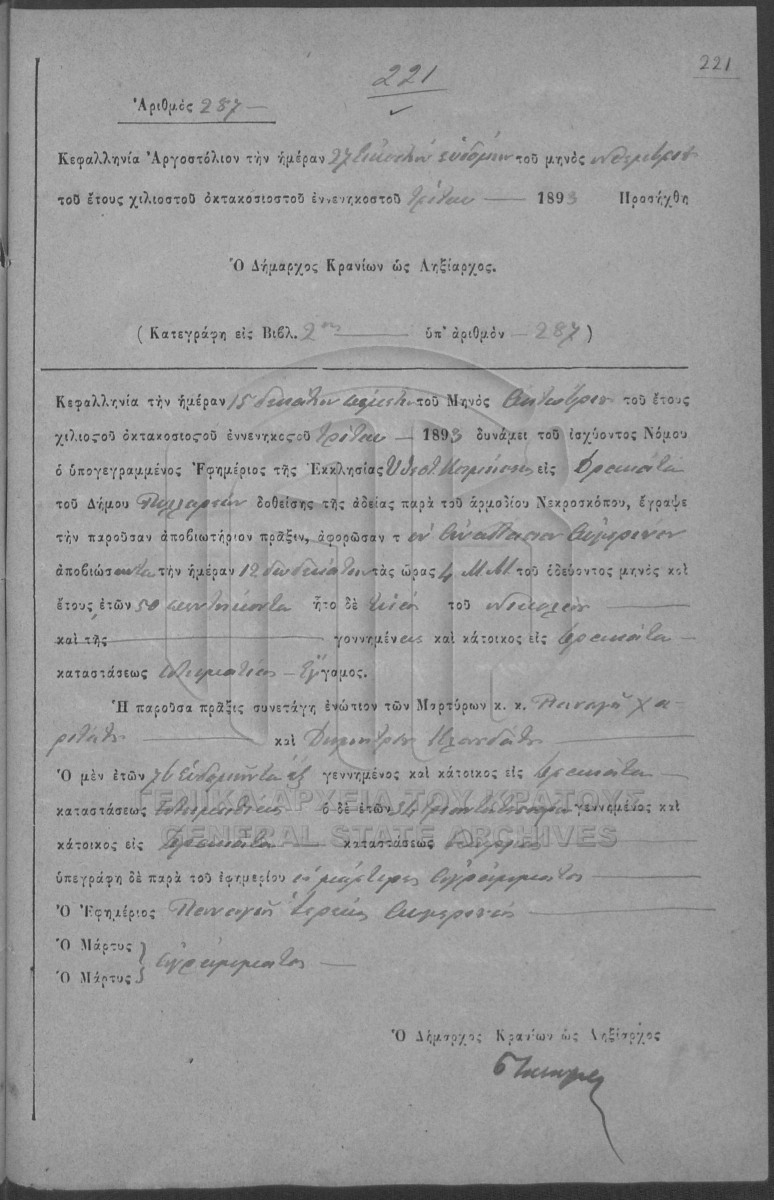 221
221
Ἀριθμὸς 287
Κεφαλληνία Ἀργοστόλιον τὴν ἡμέραν 27 εἰκοστὴν ἑβδόμην τοῦ μηνὸς
τοῦ ἔτους χιλιοστοῦ ὀκτακοσιοστοῦ ἐννενηκοστοῦ τρίτου 1893 Προσήχθη
Ὁ Δήμαρχος Κρανίων ὡς Ληξίαρχος.
(Κατεγράφη εἰς Βιβλ. 2ον ὑπ' ἀριθμὸν 287)
Κεφαλληνία τὴν ἡμέραν 15 δεκάτην πέμπτην τοῦ Μηνὸς Ὀκτωβρίου τοῦ ἔτους
χιλιοςοῦ ὀκτακοσιοςοῦ ἐννενηκοςοῦ τρίτου 1893 δυνάμει τοῦ ἰσχύοντος Νόμου
ὁ ὑπογεγραμμένος Ἐφημέριος τῆς Ἐκκλησίας Κοιμήσεως εἰς Δρακάτα
τοῦ Δήμου δοθείσης τῆς ἀδείας παρὰ τοῦ ἁρμοδίου Νεκροσκόπου, ἔγραψε
τὴν παροῦσαν ἀποβιωτήριον πρᾶξιν, ἀφορῶσαν τ ὸν
ἀποβιώσαντα τὴν ἡμέραν 12 δωδεκάτην τὰς ὥρας 4 Μ.Μ. τοῦ ὁδεύοντος μηνὸς καὶ
ἔτους ἐτῶν 50 πεντήκοντα ἦτο δὲ υἱὸς τοῦ Νικολάου
καὶ τῆς γεννημένος καὶ κάτοικος εἰς Δρακάτα
καταστάσεως κτηματίας Ἔγγαμος.
Ἡ παροῦσα πρᾶξις συνετάγη ἐνώπιον τῶν Μαρτύρων κ. κ. Παναγῆ Χα-
ριτάτου καὶ Δημητρίου
Ὁ μὲν ἐτῶν 76 ἑβδομῆντα ἓξ γεννημένος καὶ κάτοικος εἰς Δρακάτα
καταστάσεως κτηματίας ὁ δὲ ἐτῶν 34 τριάντα τεσσάρων γεννημένος καὶ
κάτοικος εἰς Δρακάτα καταστάσεως γεωργὸς
ὑπεγράφη δὲ παρὰ τοῦ ἐφημερίου οἱ μάρτυρες ἀγράμματοι
Ὁ Ἐφημέριος Παναγῆς ἱερεὺς
Ὁ Μάρτυς } ἀγράμματος
Ὁ Μάρτυς
ΓΕΝΙΚΑ ΑΡΧΕΙΑ ΤΟΥ ΚΡΑΤΟΥΣ
GENERAL STATE ARCHIVES
Ὁ Δήμαρχος Κρανίων ὡς Ληξίαρχος